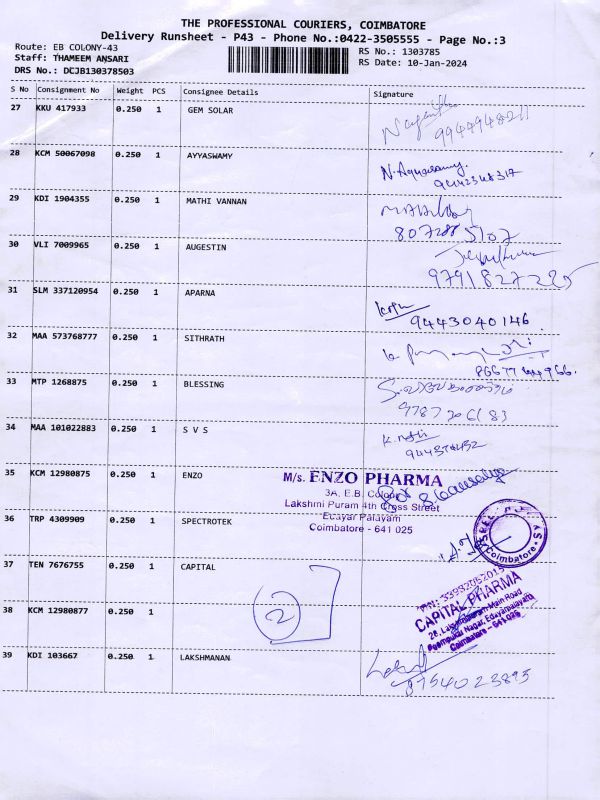 THE PROFESSIONAL COURIERS, COIMBATORE
Delivery Runsheet - P43 - Phone No.:0422-3505555 - Page No.:3
Route: EB COLONY-43
RS No.: 1303785
Staff: THAMEEM ANSARI
RS Date: 10-Jan-2024
DRS No.: DCJB130378503
S No Consignment No Weight PCS Consignee Details Signature
27 KKU 417933 0.250 1 GEM SOLAR
9944948211
28 KCM 50067098 0.250 1 AYYASWAMY
N.
9442348317
29 KDI 1904355 0.250 1 MATHI VANNAN
30 VLI 7009965 0.250 1 AUGESTIN
9791827225
31 SLM 337120954 0.250 1 APARNA
9443040146
32 MAA 573768777 0.250 1 SITHRATH
33 MTP 1268875 0.250 1 BLESSING
9787206183
34 MAA 101022883 0.250 1 S V S
35 KCM 12980875 0.250 1 ENZO
M/s. ENZO PHARMA
3A, E.B. Colony
Lakshmi Puram 4th Cross Street
Edayar Palayam
Coimbatore - 641 025
36 TRP 4309909 0.250 1 SPECTROTEK
Coimbatore
37 TEN 7676755 0.250 1 CAPITAL
CAPITAL PHARMA
Coimbatore - 641 025
2
38 KCM 12980877 0.250 1
39 KDI 103667 0.250 1 LAKSHMANAN
8754023895